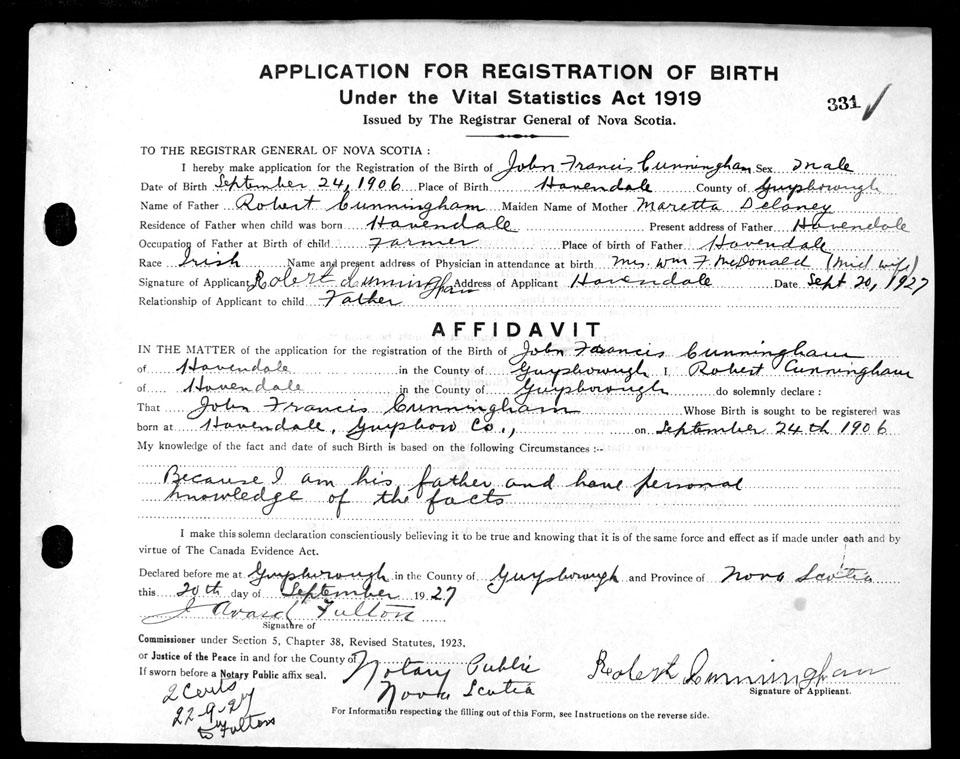 APPLICATION FOR REGISTRATION OF BIRTH
Under the Vital Statistics Act 1919
331
Issued by The Registrar General of Nova Scotia.
TO THE REGISTRAR GENERAL OF NOVA SCOTIA :
I hereby make application for the Registration of the Birth of John Francis Cunningham Sex male
Date of Birth September 24, 1906 Place of Birth Havendale County of Guysborough
Name of Father Robert Cunningham Maiden Name of Mother Maretta Delaney
Residence of Father when child was born Havendale Present address of Father Havendale
Occupation of Father at Birth of child Farmer Place of birth of Father Havendale
Race Irish Name and present address of Physician in attendance at birth Mrs. Wm F. McDonald (Mid wife)
Signature of Applicant Robert Cunningham Address of Applicant Havendale Date Sept 20, 1927
Relationship of Applicant to child Father
AFFIDAVIT
IN THE MATTER of the application for the registration of the Birth of John Francis Cunningham
of Havendale in the County of Guysborough I Robert Cunningham
of Havendale in the County of Guysborough do solemnly declare :
That John Francis Cunningham Whose Birth is sought to be registered was
born at Havendale, Guysboro Co., on September 24th 1906
My knowledge of the fact and date of such Birth is based on the following Circumstances :-
Because I am his father and have personal
knowledge of the facts
I make this solemn declaration conscientiously believing it to be true and knowing that it is of the same force and effect as if made under oath and by
virtue of The Canada Evidence Act.
Declared before me at Guysborough in the County of Guysborough and Province of Nova Scotia
this 20th day of September 1927
J Fulton
Signature of
Commissioner under Section 5, Chapter 38, Revised Statutes, 1923,
or Justice of the Peace in and for the County of Notary Public
If sworn before a Notary Public affix seal. Nova Scotia
Robert Cunningham
Signature of Applicant.
2 Certs
22-9-27
to Fulton
For Information respecting the filling out of this Form, see Instructions on the reverse side.